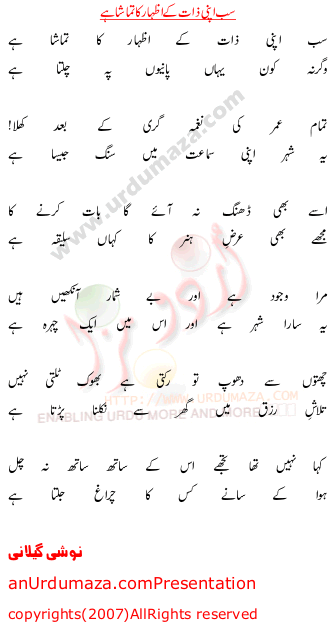 سب اپنی ذات کے اظہار کا تماشا ہے
سب اپنی ذات کے اظہار کا تماشا ہے
وگرنہ کون یہاں پانیوں پہ چلتا ہے
تمام عمر کی نغمہ گری کے بعد کھلا!
یہ شہر اپنی سماعت میں سنگ جیسا ہے
اسے بھی ڈھنگ نہ آئے گا بات کرنے کا
مجھے بھی عرضِ ہنر کا کہاں سلیقہ ہے
مرا وجود ہے اور بے شمار آنکھیں ہیں
یہ سارا شہر ہے اور اس میں ایک چہرہ ہے
چھتوں سے دھوپ تو رکتی ہے بھوک ٹلتی نہیں
تلاشِ رزق میں گھر سے نکلنا پڑتا ہے
کہا نہیں تھا تجھے اس کے ساتھ ساتھ نہ چل
ہوا کے سانے کس کا چراغ جلتا ہے
نوشی گیلانی
anUrdumaza.comPresentation
copyrights(2007)AllRights reserved
www.urdumaza.com
اردو مزا
HTTP://WWW.URDUMAZA.COM
ENABLING URDU MORE AND MORE